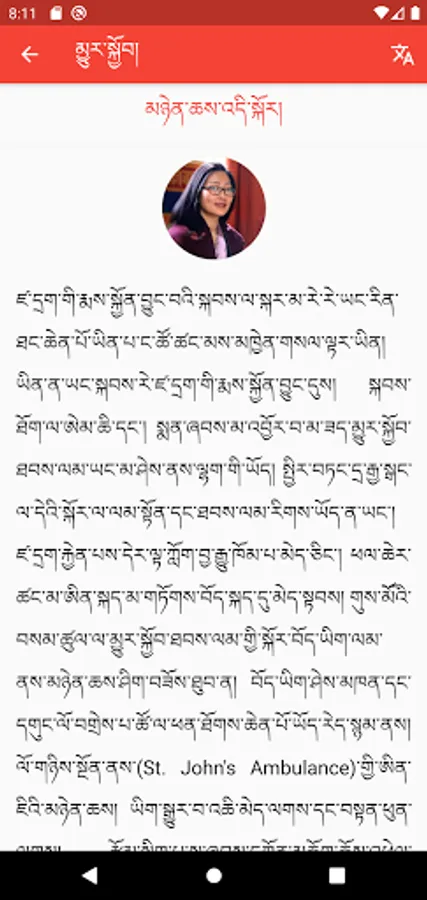 8:11
མྱུར་སྐྱོབ།
མཉེན་ཆས་འདི་སྐོར།
ཛ་དྲག་གི་རྨས་སྐྱོན་བྱུང་བའི་སྐབས་ལ་སྐར་མ་རེ་རེ་ཡང་རིན་
ཐང་ཆེན་པོ་ཡིན་པ་ང་ཚོ་ཚང་མས་མཁྱེན་གསལ་ལྟར་ཡིན།
ཡིན་ན་ཡང་སྐབས་རེ་ཛ་དྲག་གི་རྨས་སྐྱོན་བྱུང་དུས། སྐབས་
ཐོག་ལ་ཨེམ་ཆི་དང་། སྨན་ཞབས་མ་འབྱོར་བ་མ་ཟད་མྱུར་སྐྱོབ་
ཐབས་ལམ་ཡང་མ་ཤེས་ནས་ལྷག་གི་ཡོད། སྤྱིར་བཏང་དྲ་རྒྱ་སྒང་
ལ་དེའི་སྐོར་ལ་ལམ་སྟོན་དང་ཐབས་ལམ་རིགས་ཡོད་ན་ཡང་།
ཛ་དྲག་རྐྱེན་པས་དེར་ལྟ་ཀློག་བྱ་རྒྱུ་ཁོམ་པ་མེད་ཅིང་། ཕལ་ཆེར་
ཚང་མ་ཨིན་སྐད་མ་གཏོགས་བོད་སྐད་དུ་མེད་སྟབས། གུས་མོའི་
བསམ་ཚུལ་ལ་མྱུར་སྐྱོབ་ཐབས་ལམ་གྱི་སྐོར་བོད་ཡིག་ལམ་
ནས་མཉེན་ཆས་ཤིག་བཟོས་ཐུབ་ན། བོད་ཡིག་ཤེས་མཁན་དང་
དགུང་ལོ་བགྲེས་པ་ཚོ་ལ་ཕན་ཐོགས་ཆེན་པོ་ཡོད་རེད་སྙམ་ནས།
ལོ་གཉིས་སྔོན་ནས་(St. John's Ambulance)་གྱི་ཨིན་
ཇིའི་མཉེན་ཆས། ཡིག་སྒྱུར་བ་འཆི་མེད་ལགས་དང་བསྟན་ཕུན་